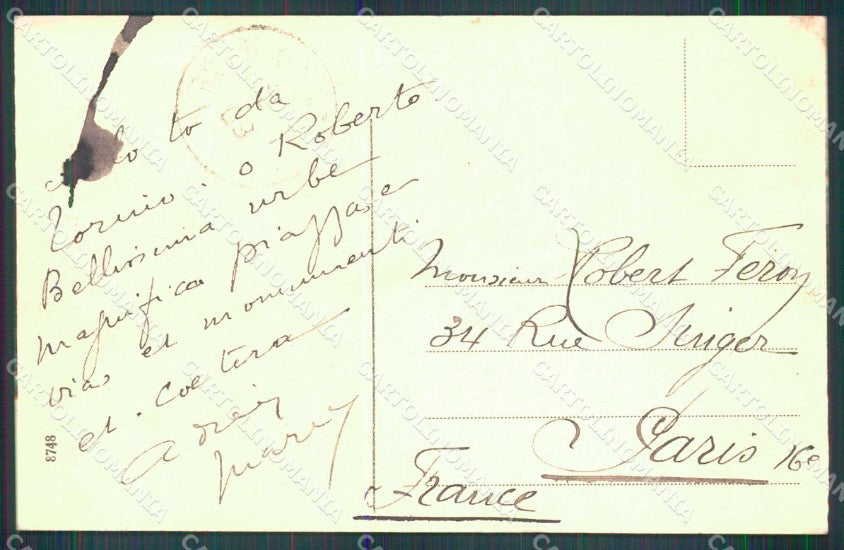 to da
Torino. o Roberto
Bellissima urbe
magnifica piazzas e
vias et monumenti
et. coetera
Monsieur Robert Feron
34 Rue Singer
Paris 16e
France
8748
CARTOLINOMANIA